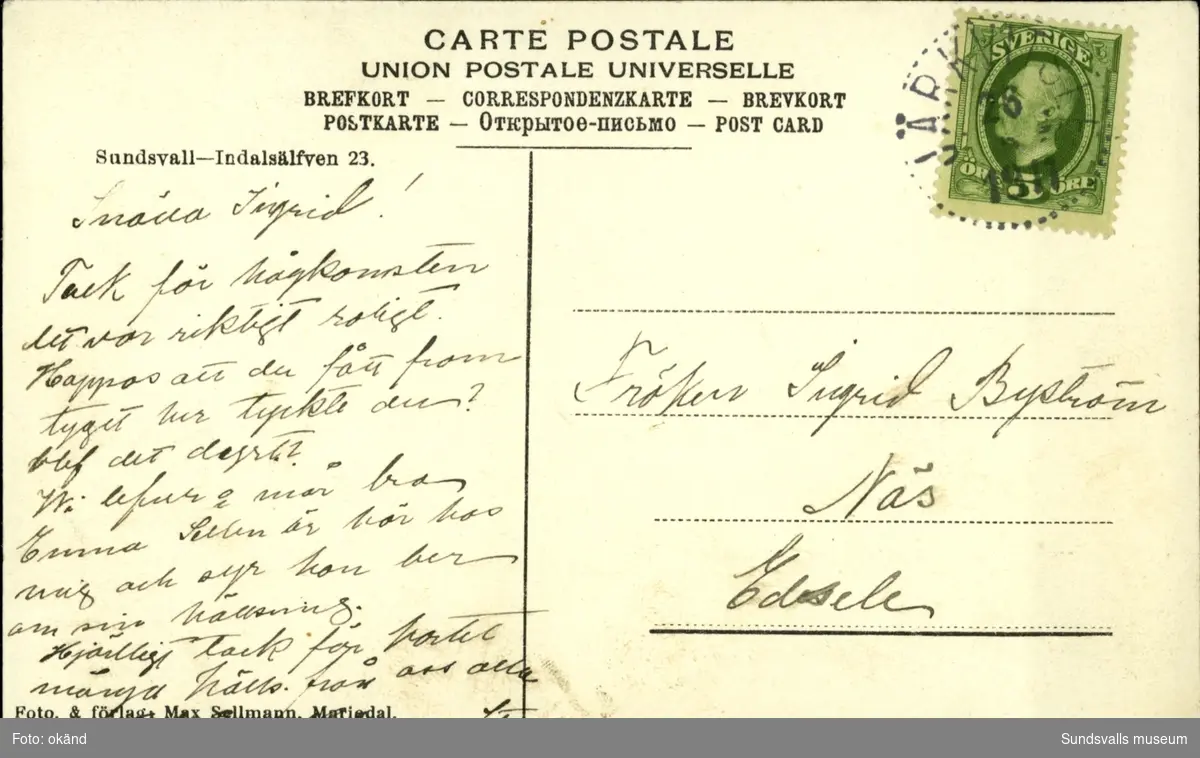 CARTE POSTALE
UNION POSTALE UNIVERSELLE
BREFKORT — CORRESPONDENZKARTE — BREVKORT
POSTKARTE — Открытое-письмо — POST CARD
Sundsvall—Indalsälfven 23.
Snälla Sigrid!
Tack för hågkomsten
det var riktigt roligt.
Hoppas att du fått fram
tyget hur tyckte du?
blef det dyrt?
Wi lefver o mår bra
Emma är här hos
mig och syr hon ber
om sin hälsning.
Hjärtligt tack för kortet
många häls. från oss alla
Foto. & förlag: Max Sellmann, Mariedal.
SVERIGE
ÖRE 5 ÖRE
1911
Fröken Sigrid Byström
Näs
Edsele
Foto: okänd
Sundsvalls museum